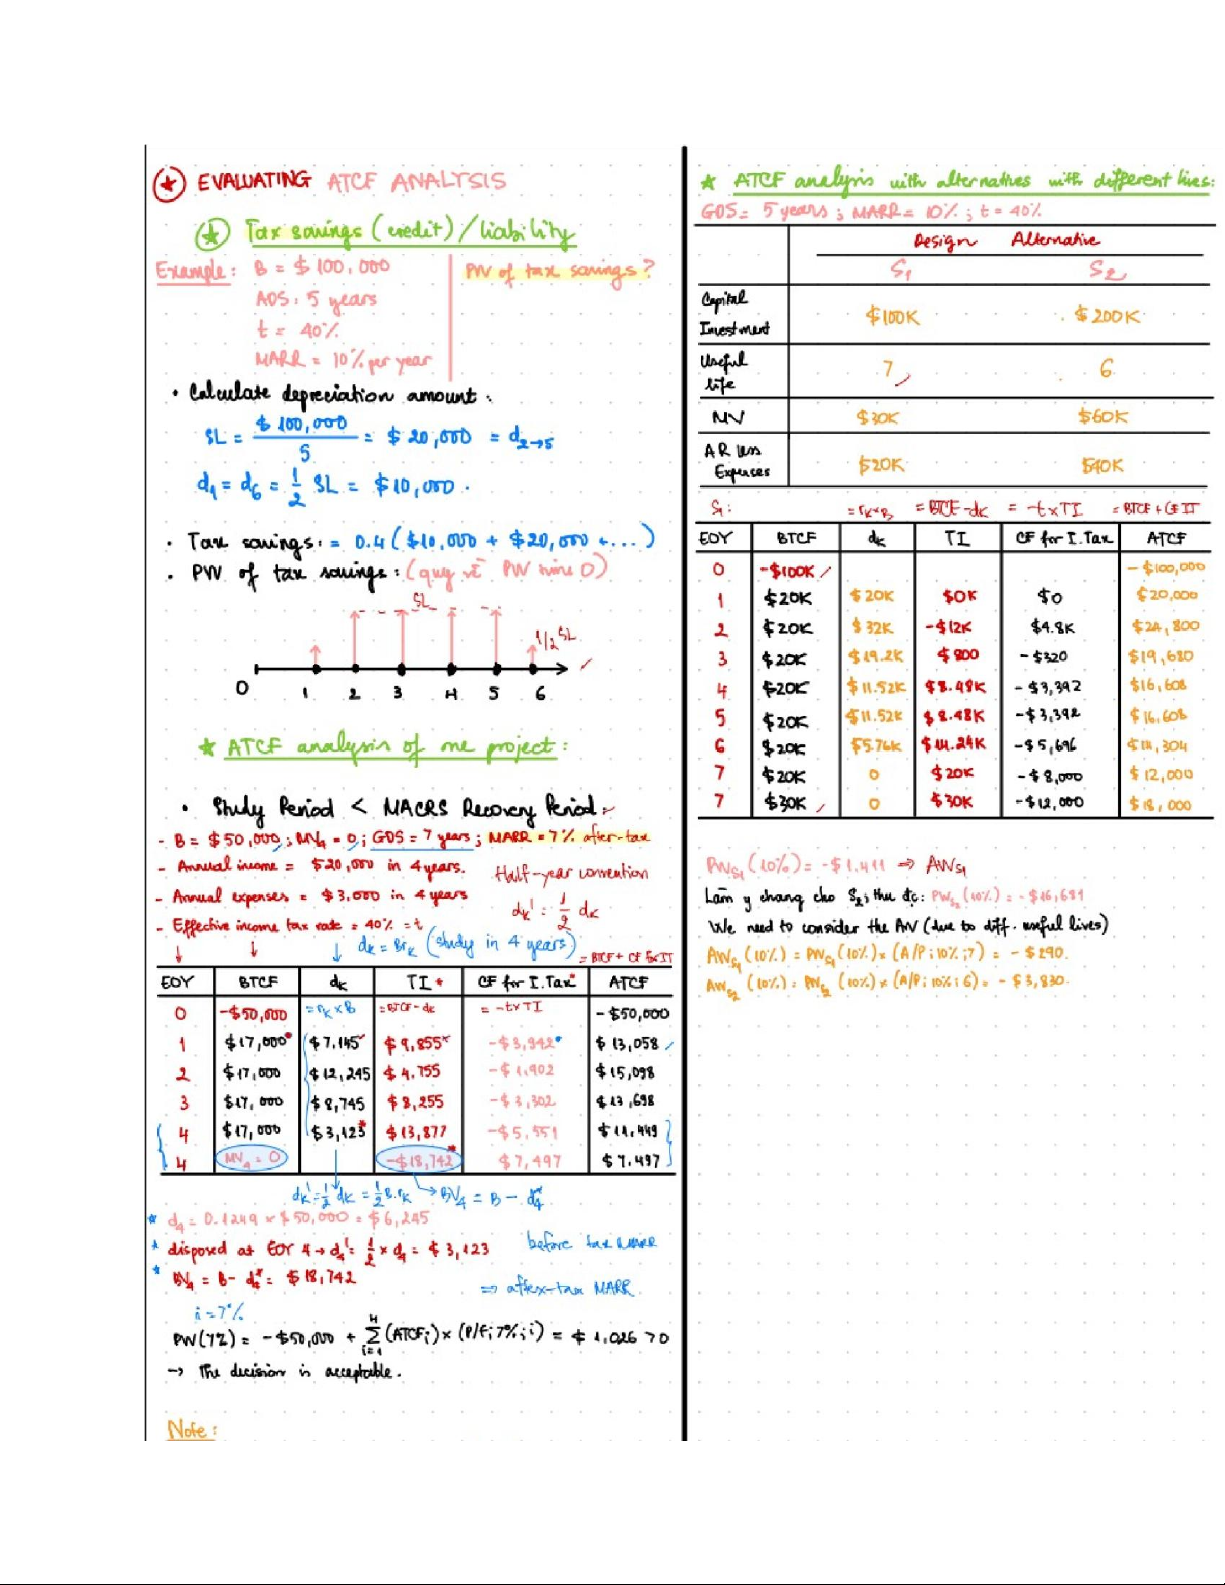 ★ EVALUATING ATCF ANALYSIS
★ Tax savings (credit) / liability
Example: B = $ 100,000
PW of tax savings?
ADS: 5 years
t = 40%
MARR = 10% per year
• Calculate depreciation amount:
SL = $ 100,000 / 5 = $ 20,000 = d2→5
d1 = d6 = 1/2 SL = $ 10,000.
• Tax savings: = 0.4 ($10,000 + $20,000 + ...)
• PW of tax savings: (quy về PW năm 0)
SL
1/2 SL
0 1 2 3 4 5 6
★ ATCF analysis of one project:
• Study Period < MACRS Recovery Period:
- B = $ 50,000; MV4 = 0; GDS = 7 years; MARR = 7% after-tax
- Annual income = $20,000 in 4 years.
Half-year convention
- Annual expenses = $ 3,000 in 4 years
dk' = 1/2 dk
- Effective income tax rate = 40% = t
dk = Brk (study in 4 years)
= BTCF + CF for IT
EOY BTCF dk TI * CF for I.Tax * ATCF
0 -$50,000 = rk × B = BTCF - dk = -t×TI -$50,000
1 $17,000 $7,145 $9,855 -$3,942 $13,058
2 $17,000 $12,245 $4,755 -$1,902 $15,098
3 $17,000 $8,745 $8,255 -$3,302 $13,698
4 $17,000 $3,123 $13,877 -$5,551 $11,449
4 MV4 = 0 -$18,742 $7,497 $7,497
dk' = 1/2 dk = 1/2 B.rk → BV4 = B - d4*
* d4 = 0.1249 × $50,000 = $6,245
* disposed at EOY 4 → d4' = 1/2 × d4 = $ 3,123
before tax MARR
* BV4 = B - d4* = $ 18,742
⇒ after-tax MARR
i = 7%
PW(7%) = -$50,000 + Σ i=1 4 (ATCFi) × (P/F; 7%; i) = $ 1,026 > 0
→ The decision is acceptable.
Note:
★ ATCF analysis with alternatives with different lives:
GDS = 5 years; MARR = 10%; t = 40%
Design Alternative
S1 S2
Capital Investment $100K $200K
Useful life 7 6
MV $30K $60K
AR less Expences $20K $40K
S1: = rk×B = BTCF - dk = -t×TI = BTCF + CF IT
EOY BTCF dk TI CF for I.Tax ATCF
0 -$100K -$100,000
1 $20K $20K $0K $0 $20,000
2 $20K $32K -$12K $4.8K $24,800
3 $20K $19.2K $800 -$320 $19,680
4 $20K $11.52K $8.48K -$3,392 $16,608
5 $20K $11.52K $8.48K -$3,392 $16,608
6 $20K $5.76K $14.24K -$5,696 $14,304
7 $20K 0 $20K -$8,000 $12,000
7 $30K 0 $30K -$12,000 $18,000
PWS1 (10%) = -$1.411 ⇒ AWS1
Làm y chang cho S2, thu đc: PWS2 (10%) = -$16,681
We need to consider the AW (due to diff. useful lives)
AWS1 (10%) = PWS1 (10%) × (A/P; 10%; 7) = -$290.
AWS2 (10%) = PWS2 (10%) × (A/P; 10%; 6) = -$3,830.